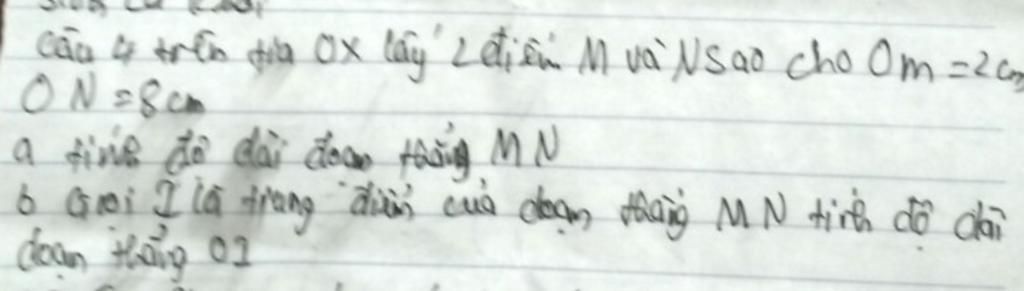 câu 4 trên tia Ox lấy 2 điểm M và N sao cho Om = 2 cm
ON = 8 cm
a tính độ dài đoạn thẳng MN
b Gọi I là trung điểm của đoạn thẳng MN tính độ dài
đoạn thẳng OI